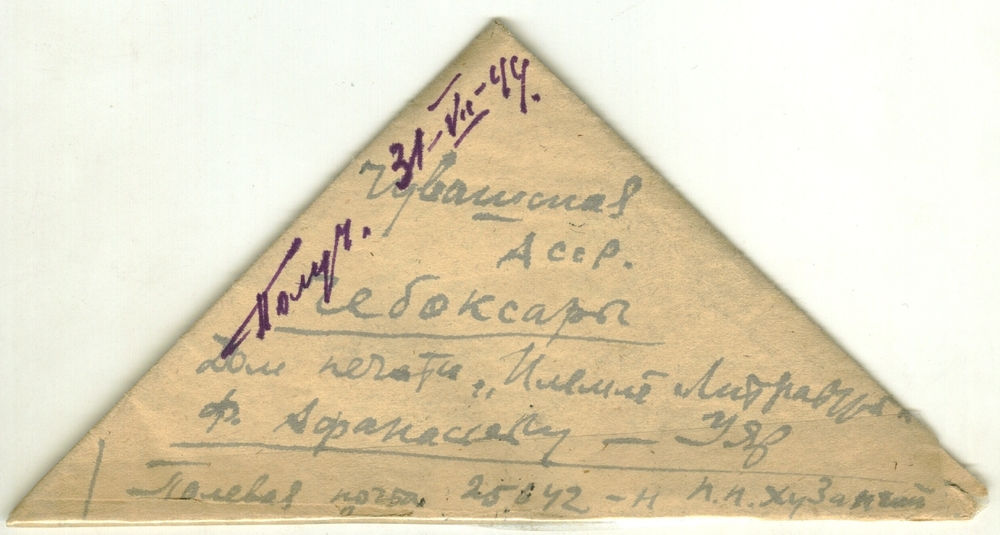 Получ. 31-VII-44.
Чувашская
АССР.
Чебоксары
Дом печати „Илемлĕ Литература"
Ф. Афанасьеву — Уяр
Полевая почта 25042 - Н П.П. Хузангай